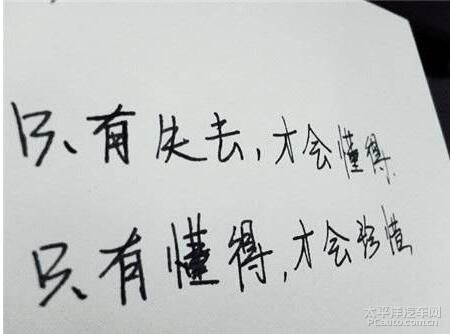 只有失去,才会懂得.
只有懂得,才会珍惜
太平洋汽车网
PCauto.com.cn